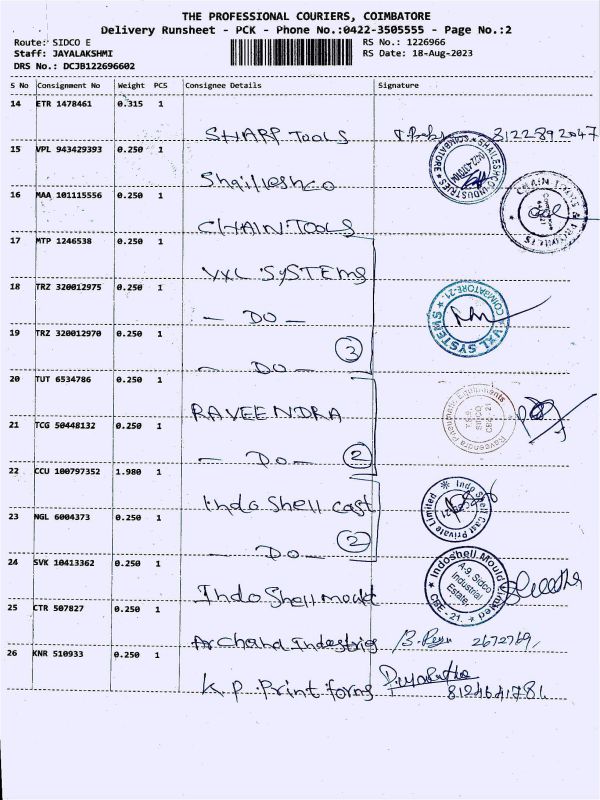 THE PROFESSIONAL COURIERS, COIMBATORE
Delivery Runsheet - PCK - Phone No.:0422-3505555 - Page No.:2
Route: SIDCO E RS No.: 1226966
Staff: JAYALAKSHMI RS Date: 18-Aug-2023
DRS No.: DCJB122696602
S No Consignment No Weight PCS Consignee Details Signature
14 ETR 1478461 0.315 1
SHARP TOOLS 8122892047
15 VPL 943429393 0.250 1
Shaileshco
16 MAA 101115556 0.250 1
CHAIN TOOLS
17 MTP 1246538 0.250 1
VXL SYSTEMS
18 TRZ 320012975 0.250 1
— DO —
19 TRZ 320012970 0.250 1
— DO — 3
20 TUT 6534786 0.250 1
RAVEENDRA
21 TCG 50448132 0.250 1
— DO — 2
22 CCU 100797352 1.980 1
Indo Shell cast
23 NGL 6004373 0.250 1
— DO — 2
24 SVK 10413362 0.250 1
Indo Shell mould
25 CTR 507827 0.250 1
Archana Industries 2672769
26 KNR 510933 0.250 1
K.P. Print forms
SHAILESHCO INDUSTRIES COIMBATORE
CHAIN TOOLS
VXL SYSTEMS COIMBATORE-21.
Raveendra Pneumatic Equipments
SIDCO
CBE - 21
Indo Shell Cast Private Limited
Indoshell Mould Limited
A-9, Sidco
Industrial
Estate,
CBE - 21.